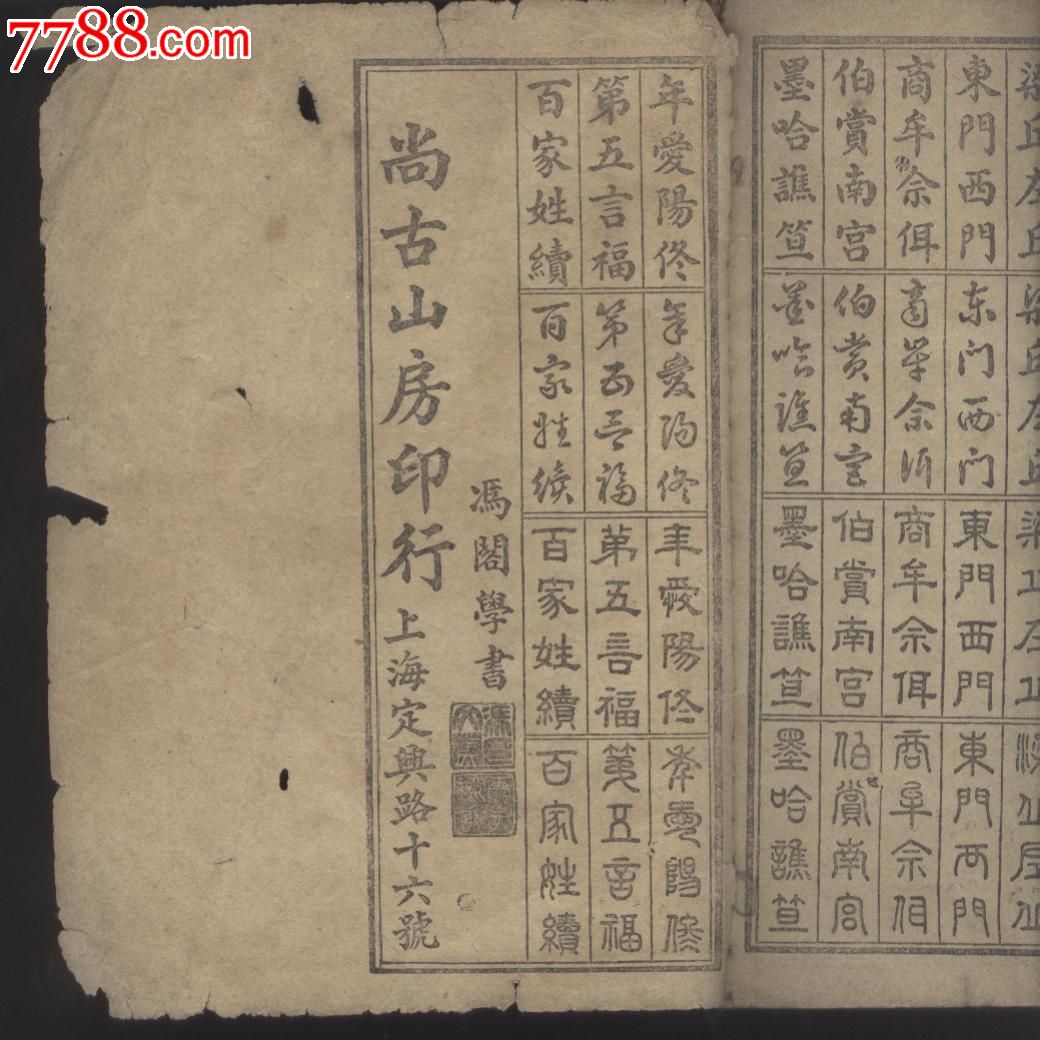 7788.com
梁丘左丘 梁丘左丘 梁丘左丘 梁丘左丘
東門西門 东门西门 東門西門 東門西門
商牟佘佴 商牟佘佴 商牟佘佴 商牟佘佴
伯賞南宮 伯賞南宮 伯賞南宮 伯賞南宮
墨哈譙笪 墨哈譙笪 墨哈譙笪 墨哈譙笪
年愛陽佟 年愛陽佟 年愛陽佟 年愛陽佟
第五言福 第五言福 第五言福 第五言福
百家姓續 百家姓續 百家姓續 百家姓續
馮閣學書
尚古山房印行 上海定興路十六號